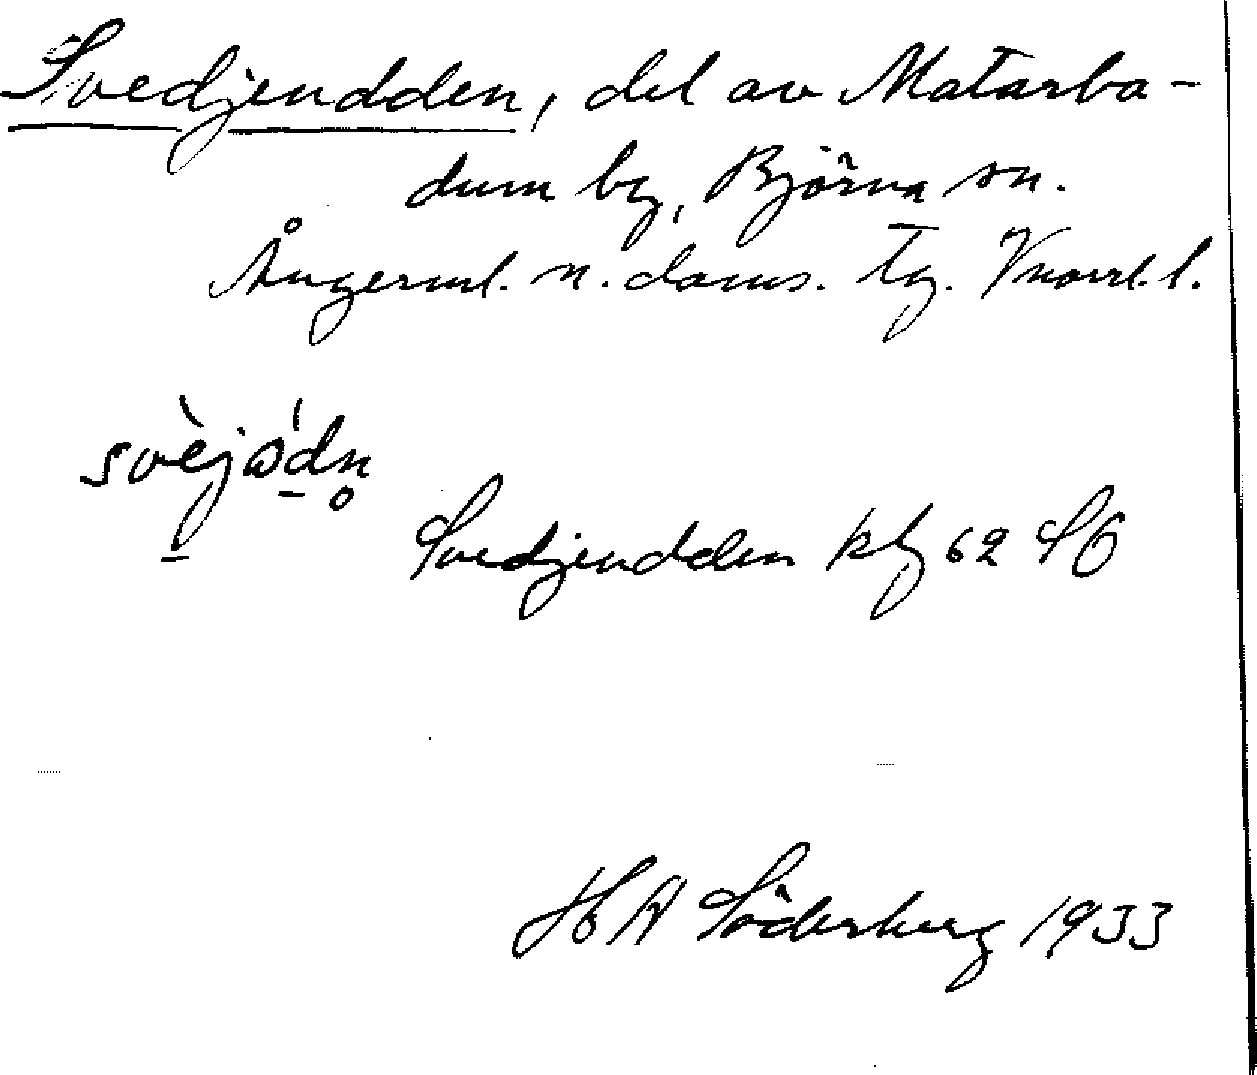 Svedjeudden, del av Matarba-
dum by, Björna sn.
Ångerml. n. doms. tg. Vnorrl. l.
svèjὼdn̥
Svedjeudden kbl 62 SO
H A Söderberg 1933